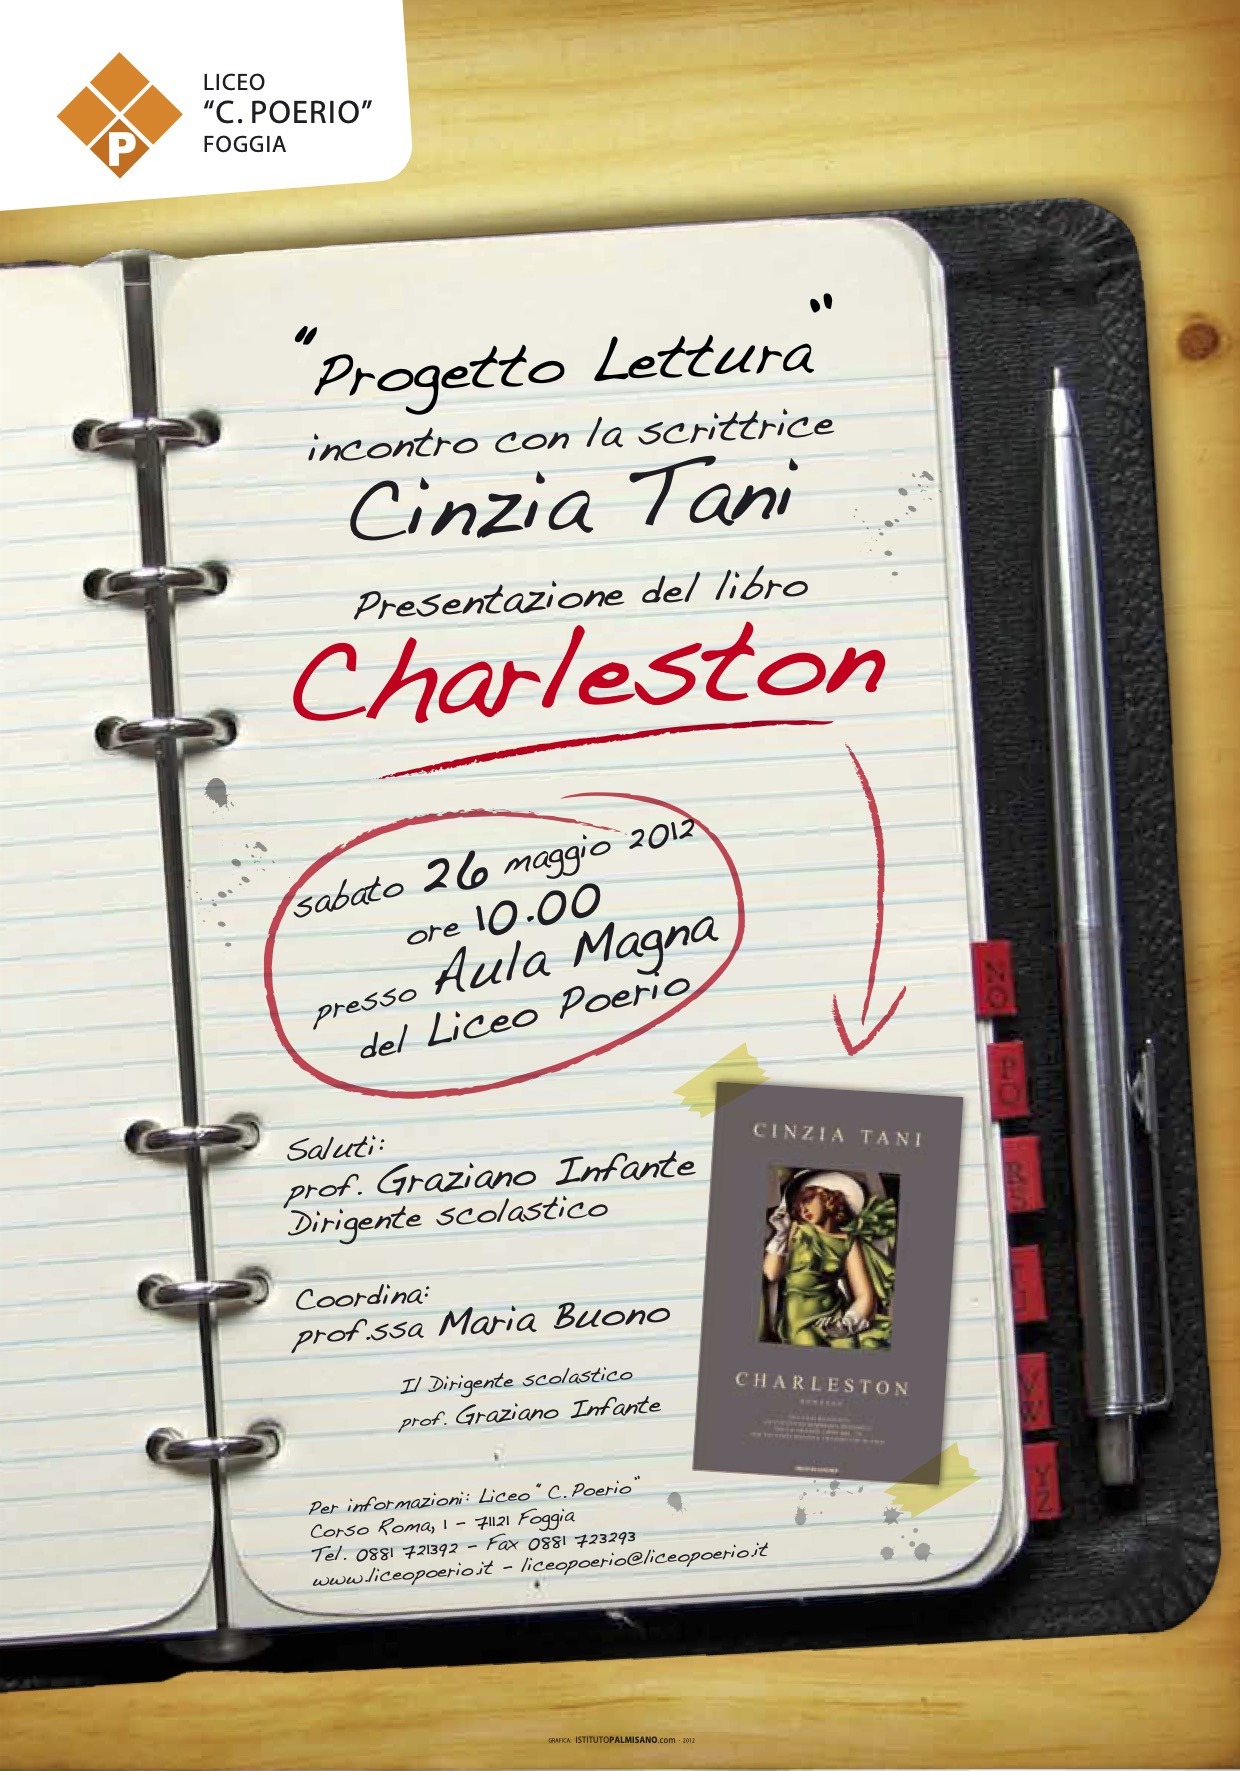 LICEO
"C. POERIO"
FOGGIA
"Progetto Lettura"
incontro con la scrittrice
Cinzia Tani
Presentazione del libro
Charleston
sabato 26 maggio 2012
ore 10.00
presso Aula Magna
del Liceo Poerio
Saluti:
prof. Graziano Infante
Dirigente scolastico
Coordina:
prof.ssa Maria Buono
Il Dirigente scolastico
prof. Graziano Infante
Per informazioni: Liceo "C. Poerio"
Corso Roma, 1 - 71121 Foggia
Tel. 0881 721392 - Fax 0881 723293
www.liceopoerio.it - liceopoerio@liceopoerio.it
CINZIA TANI
CHARLESTON
NO
PQ
RS
VW
YZ
GRAFICA: ISTITUTOPALMISANO.com - 2012